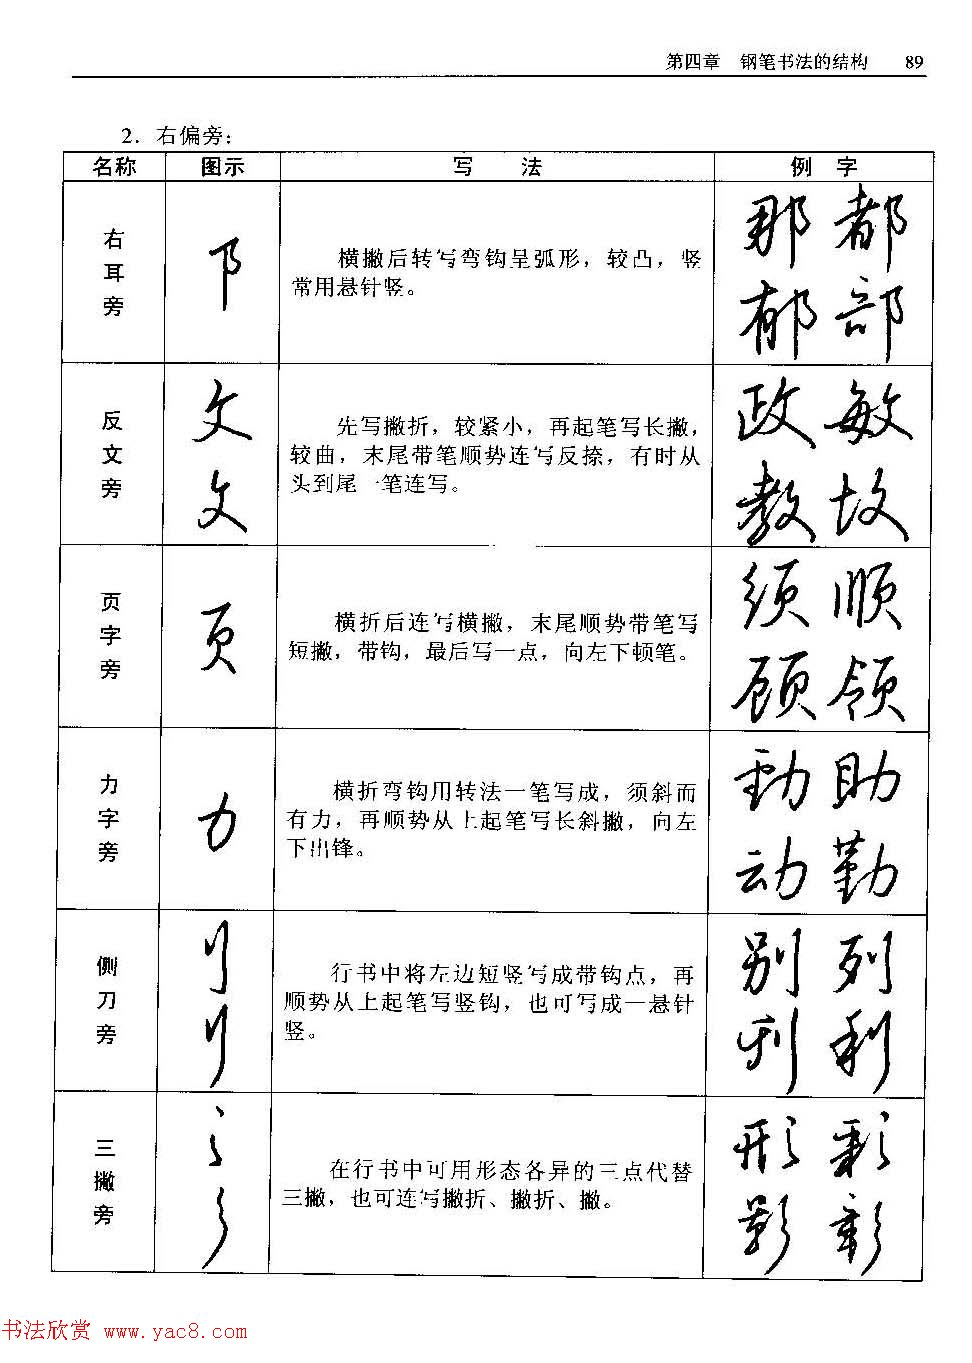 第四章 钢笔书法的结构 89
2. 右偏旁:
名称 图示 写 法 例 字
右耳旁 阝 横撇后转写弯钩呈弧形，较凸，竖 那 都
常用悬针竖。 郁 部
反文旁 攵 先写撇折，较紧小，再起笔写长撇， 政 敏
较曲，末尾带笔顺势连写反捺，有时从
攵 头到尾一笔连写。 教 故
页字旁 页 横折后连写横撇，末尾顺势带笔写 须 顺
短撇，带钩，最后写一点，向左下顿笔。 顾 领
力字旁 力 横折弯钩用转法一笔写成，须斜而 動 助
有力，再顺势从上起笔写长斜撇，向左
下出锋。 动 勤
侧刀旁 刂 行书中将左边短竖写成带钩点，再 别 列
顺势从上起笔写竖钩，也可写成一悬针
刂 竖。 刊 利
三撇旁 彡 在行书中可用形态各异的三点代替 形 彩
彡 三撇，也可连写撇折、撇折、撇。 影 彰
书法欣赏 www.yac8.com